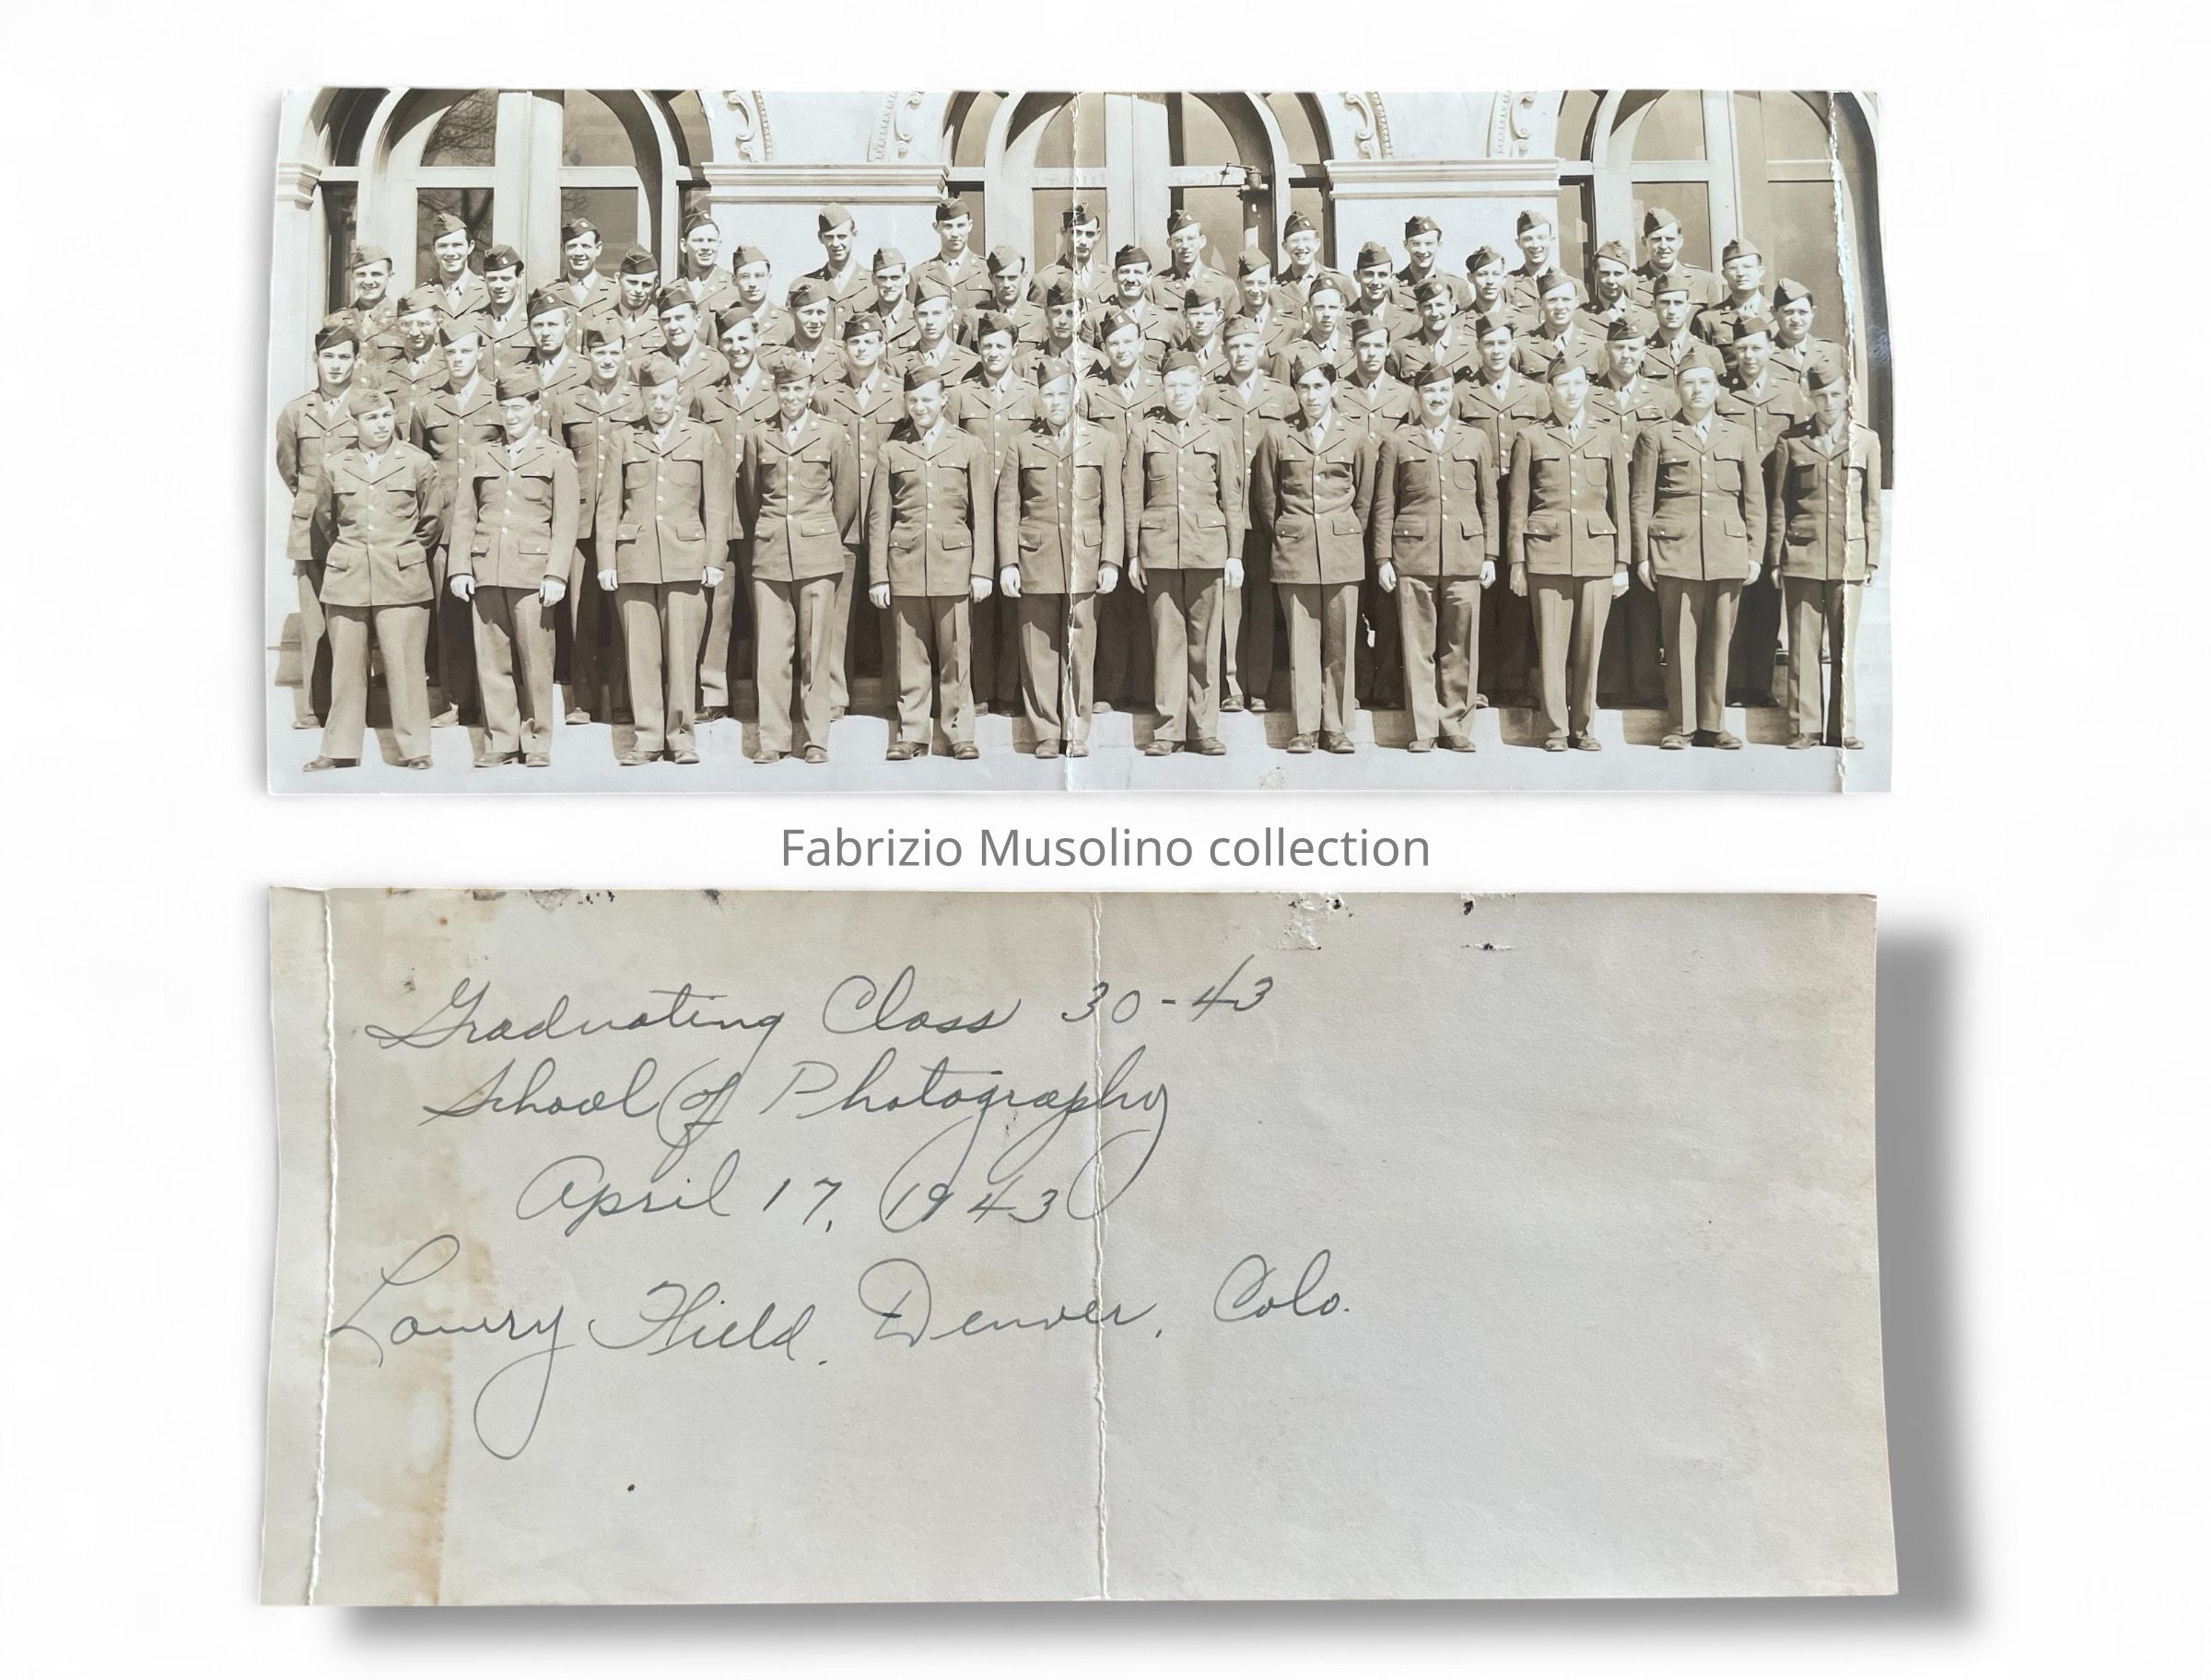 Fabrizio Musolino collection
Graduating Class 30-43
School of Photography
April 17, 1943
Lowry Field, Denver, Colo.